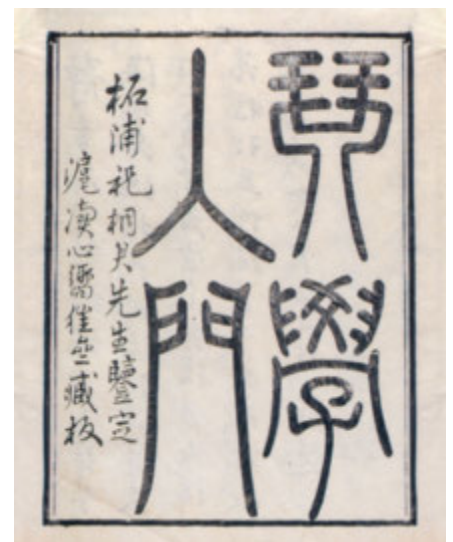 琴學
入門
柘浦祝桐君先生鑒定
滬瀆心嚮往齋藏板